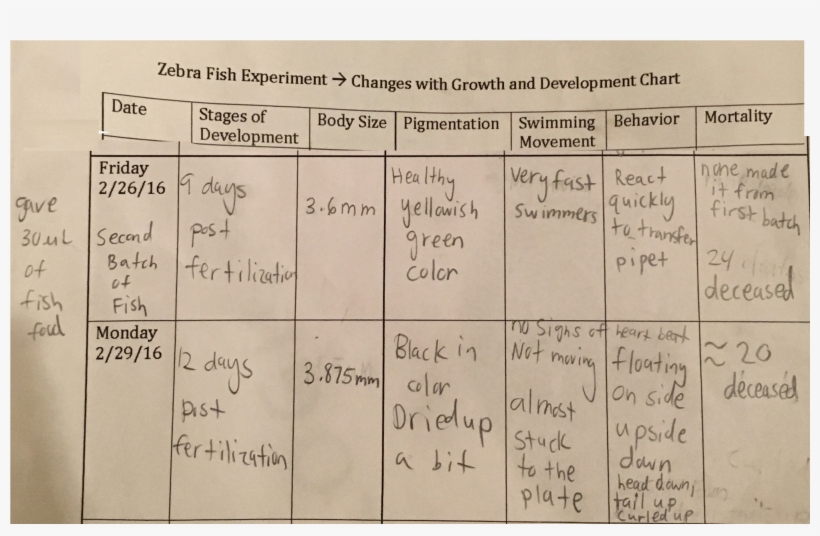 Zebra Fish Experiment → Changes with Growth and Development Chart
Date
Stages of
Development
Body Size
Pigmentation
Swimming
Movement
Behavior
Mortality
gave
30uL
of
fish
food
Friday
2/26/16
Second
Batch
of
Fish
9 days
post
fertilization
3.6mm
Healthy
yellowish
green
color
Very fast
swimmers
React
quickly
to transfer
pipet
none made
it from
first batch
24
deceased
Monday
2/29/16
12 days
post
fertilization
3.875mm
Black in
color
Dried up
a bit
no signs of heart beat
Not moving
almost
stuck
to the
plate
floating
on side
upside
down
head down,
tail up
curled up
≈ 20
deceased